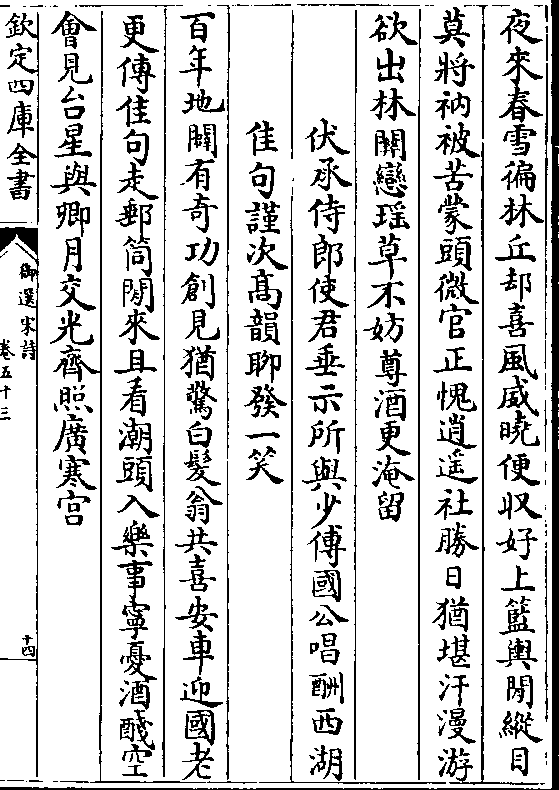 夜來春雪徧林丘却喜風威曉便収好上籃輿閒縱目
莫將衲被苦蒙頭微官正愧逍遥社勝日猶堪汗漫游
欲出林關戀瑶草不妨尊酒更淹留
伏承侍郎使君垂示所與少傅國公唱酬西湖
佳句謹次髙韻聊發一笑
百年地闢有奇功創見猶驚白髮翁共喜安車迎國老
更傳佳句走郵筒閒來且看潮頭入樂事寧憂酒醆空
會見台星與卿月交光齊照廣寒宫
欽定四庫全書
御選宋詩
卷五十三
十四